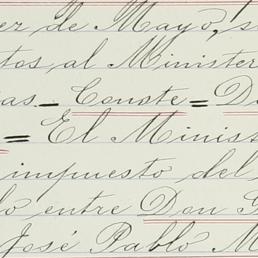 er de Mayo, s
tos al Minister
as - Conste = D
= El Minis
impuesto del
lo entre Don G
José Pablo M